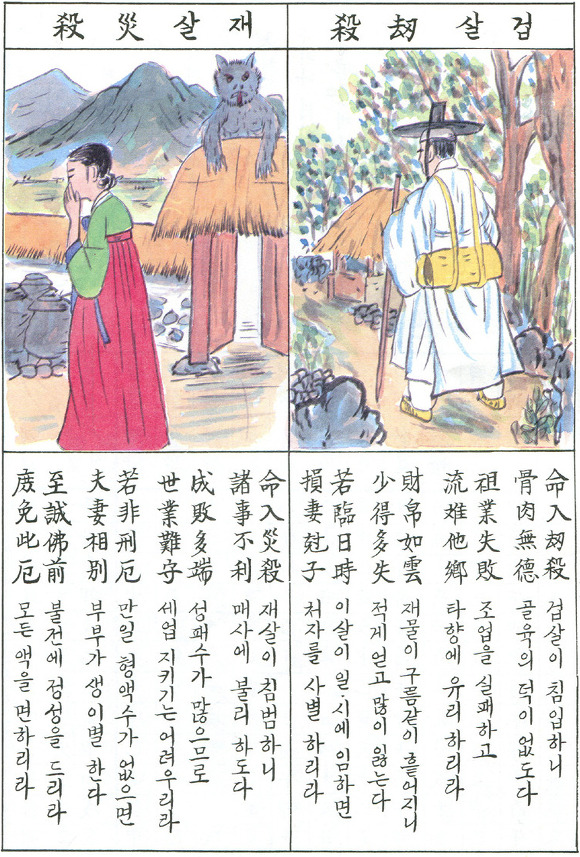 겁살 劫殺
命入劫殺 겁살이 침입하니
骨肉無德 골육의 덕이 없도다
祖業失敗 조업을 실패하고
流離他鄕 타향에 유리 하리라
財帛如雲 재물이 구름같이 흩어지니
少得多失 적게 얻고 많이 잃는다
若臨日時 이살이 일·시에 임하면
損妻尅子 처자를 사별 하리라
재살 災殺
命入災殺 재살이 침범하니
諸事不利 매사에 불리 하도다
成敗多端 성패수가 많으므로
世業難守 세업 지키기는 어려우리라
若非刑厄 만일 형액수가 없으면
夫妻相別 부부가 생이별 한다
至誠佛前 불전에 정성을 드리라
庶免此厄 모든 액을 면하리라